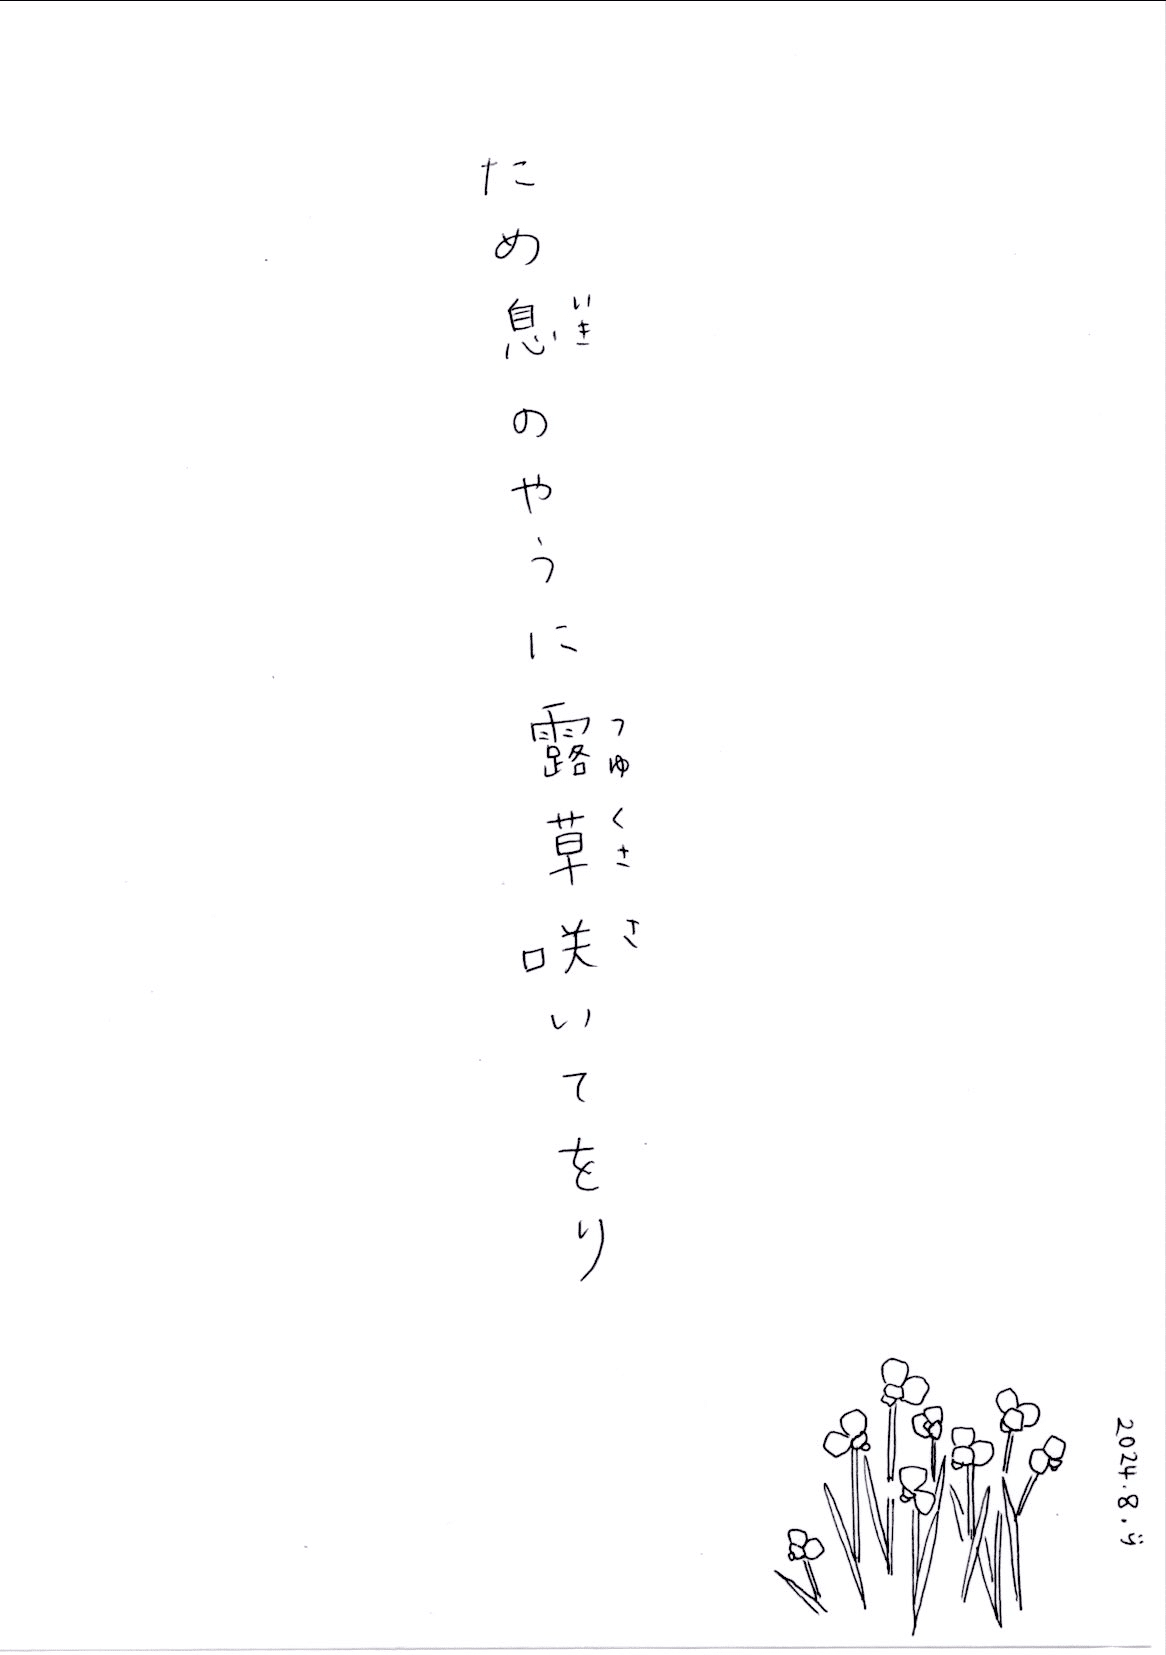 ため息のやうに露草咲いてをり
いき
つゆくさ
さ
2024.8.